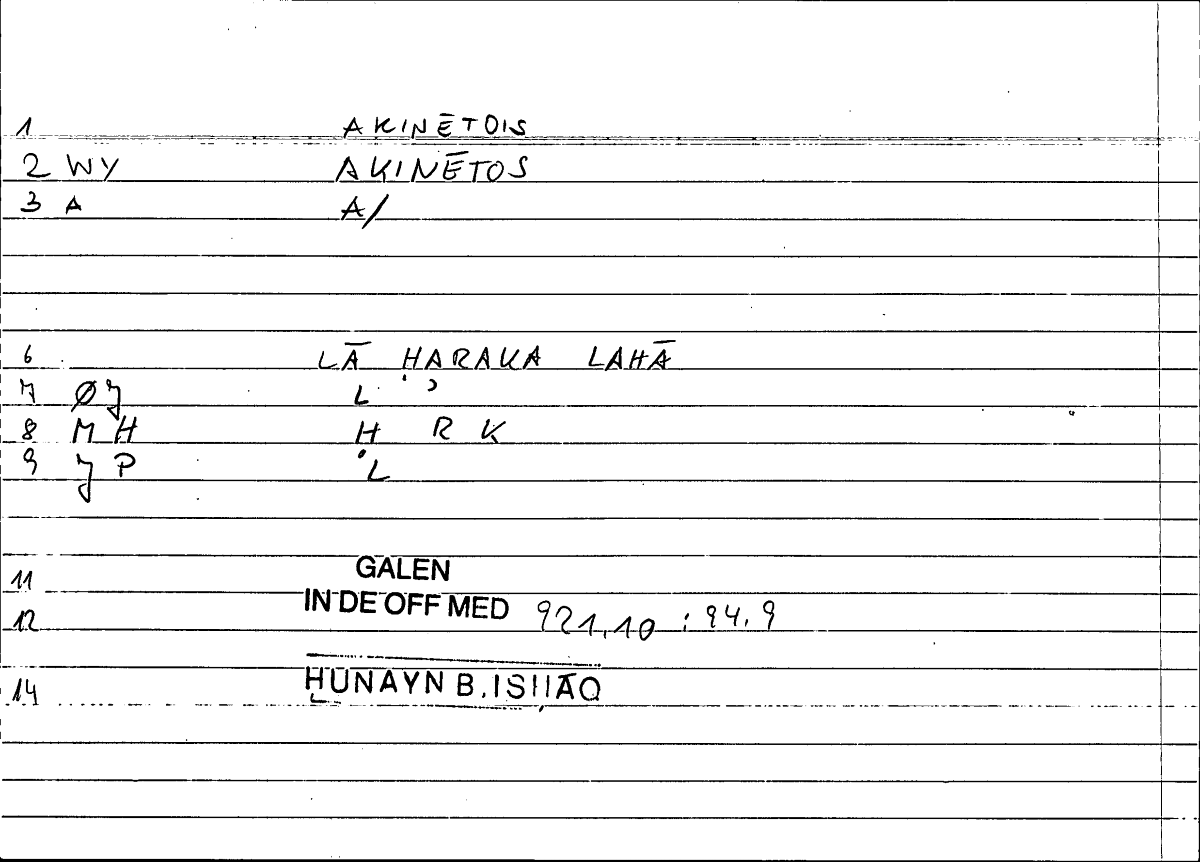 1 AKINĒTOIS
2 WY AKINĒTOS
3 A A/
6 LĀ ḤARAKA LAHĀ
7 ØJ L ʾ
8 MH Ḥ R K
9 JP L
11 GALEN
12 IN DE OFF MED 921,10 : 94.9
14 ḤUNAYN B. ISḤĀQ